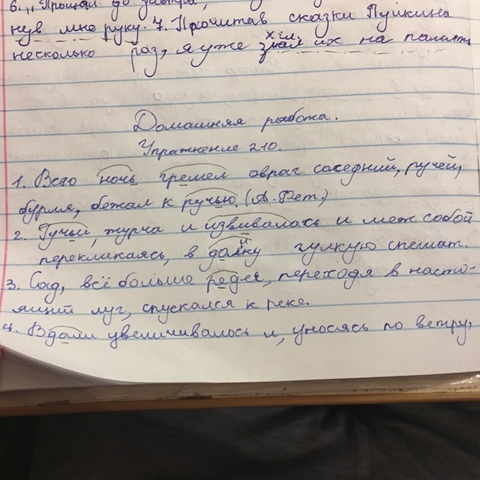 6. "Прощай до завтра,
нув мне руку. 7. Прочитав сказки Пушкина
несколько раз, я уже знал их на память
Домашняя работа.
Упражнение 210.
1. Всю ночь гремел овраг соседний, ручей,
бурля, бежал к ручью. (А. Фет.)
2. Ручьи, журча и извиваясь и меж собой
перекликаясь, в долину гулкую спешат.
3. Сад, всё больше редея, переходя в насто-
ящий луг, спускался к реке.
4. Вдали увеличивалось и, уносясь по ветру,